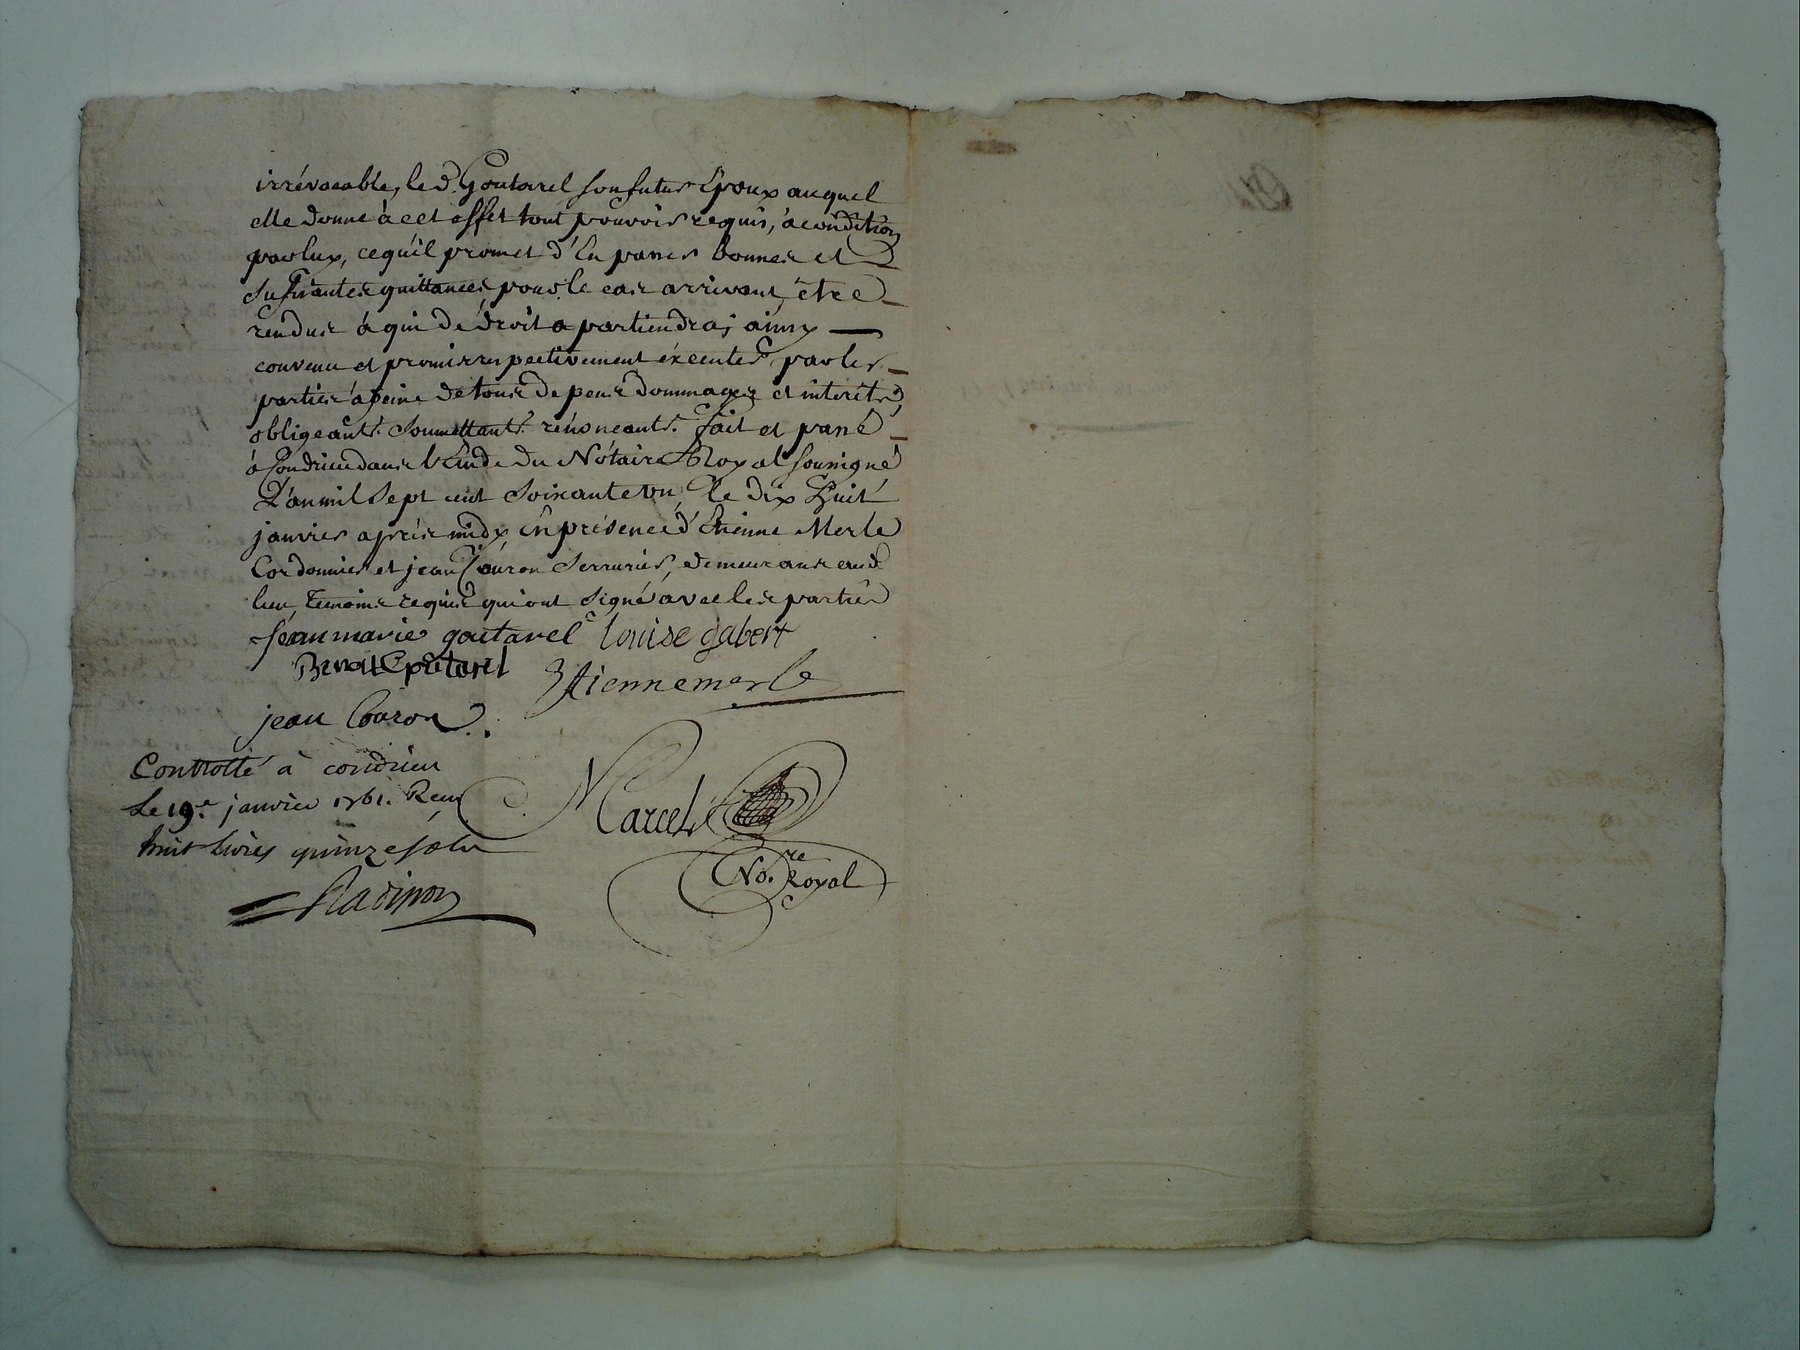 irrévocable, le d. Goutarel son futur Epoux auquel
elle donne à cet effet tout pouvoir requis, à condition
par luy, ce qu'il promet d'En passer bonnes et
sufisantes quittances pour le cas arrivant, être
rendus à qui de droit apartiendra; ainsy
convenu et promis respectivement éxecuter par les
parties à peine de tous depens dommages et interêts,
obligeants. Soumettants. rénonceants. fait et passé
à Condrieu dans l'Etude du Nótaire Royal soussigné
L'an mil sept cent soixante un, le dix huit
janvier après midy, En présence d'Etienne Merle
Cordonnier et jean Couron Serrurier, demeurans aud.
lieu, témoins requis qui ont signé avec les parties
jean marie goutarel louise gabert
Benoit Goutarel
Etienne merle
jean Couron
Controllé à condrieu
Le 19e. janvier 1761. Reçu
huit Livres quinze sols
Marcel
No.re Royal